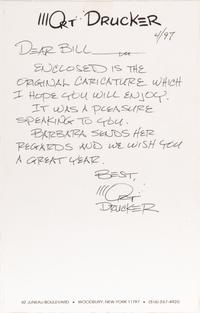 Art Drucker
4/97
DEAR BILL
ENCLOSED IS THE
ORIGINAL CARICATURE WHICH
I HOPE YOU WILL ENJOY.
IT WAS A PLEASURE
SPEAKING TO YOU.
BARBARA SENDS HER
REGARDS AND WE WISH YOU
A GREAT YEAR.
BEST,
Art
DRUCKER
42 JUNEAU BOULEVARD • WOODBURY, NEW YORK 11797 • (516) 367-4920